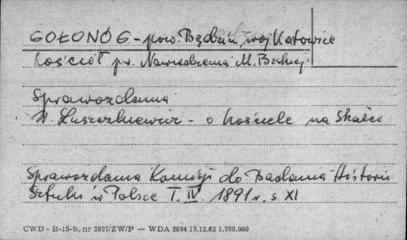 GOŁONÓG - pow. Będzin, woj. Katowice
Kościół pw. Nawiedzenia M. Boskiej
Sprawozdania
W Łuszczkiewicz - o kościele na Skałce
Sprawozdania Komisji do Badania Historii
Sztuki w Polsce T. IV. 1891 r. s XI
CWD - B-15-b, nr 2827/ZW/P — WDA 2604 13.12.62 1.700.000